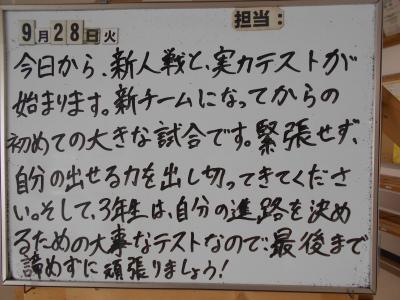 9月28日火
担当:
今日から、新人戦と、実力テストが
始まります。新チームになってからの
初めての大きな試合です。緊張せず、
自分の出せる力を出し切ってきてくださ
い。そして、3年生は、自分の進路を決め
るための大事なテストなので、最後まで
諦めずに頑張りましょう!